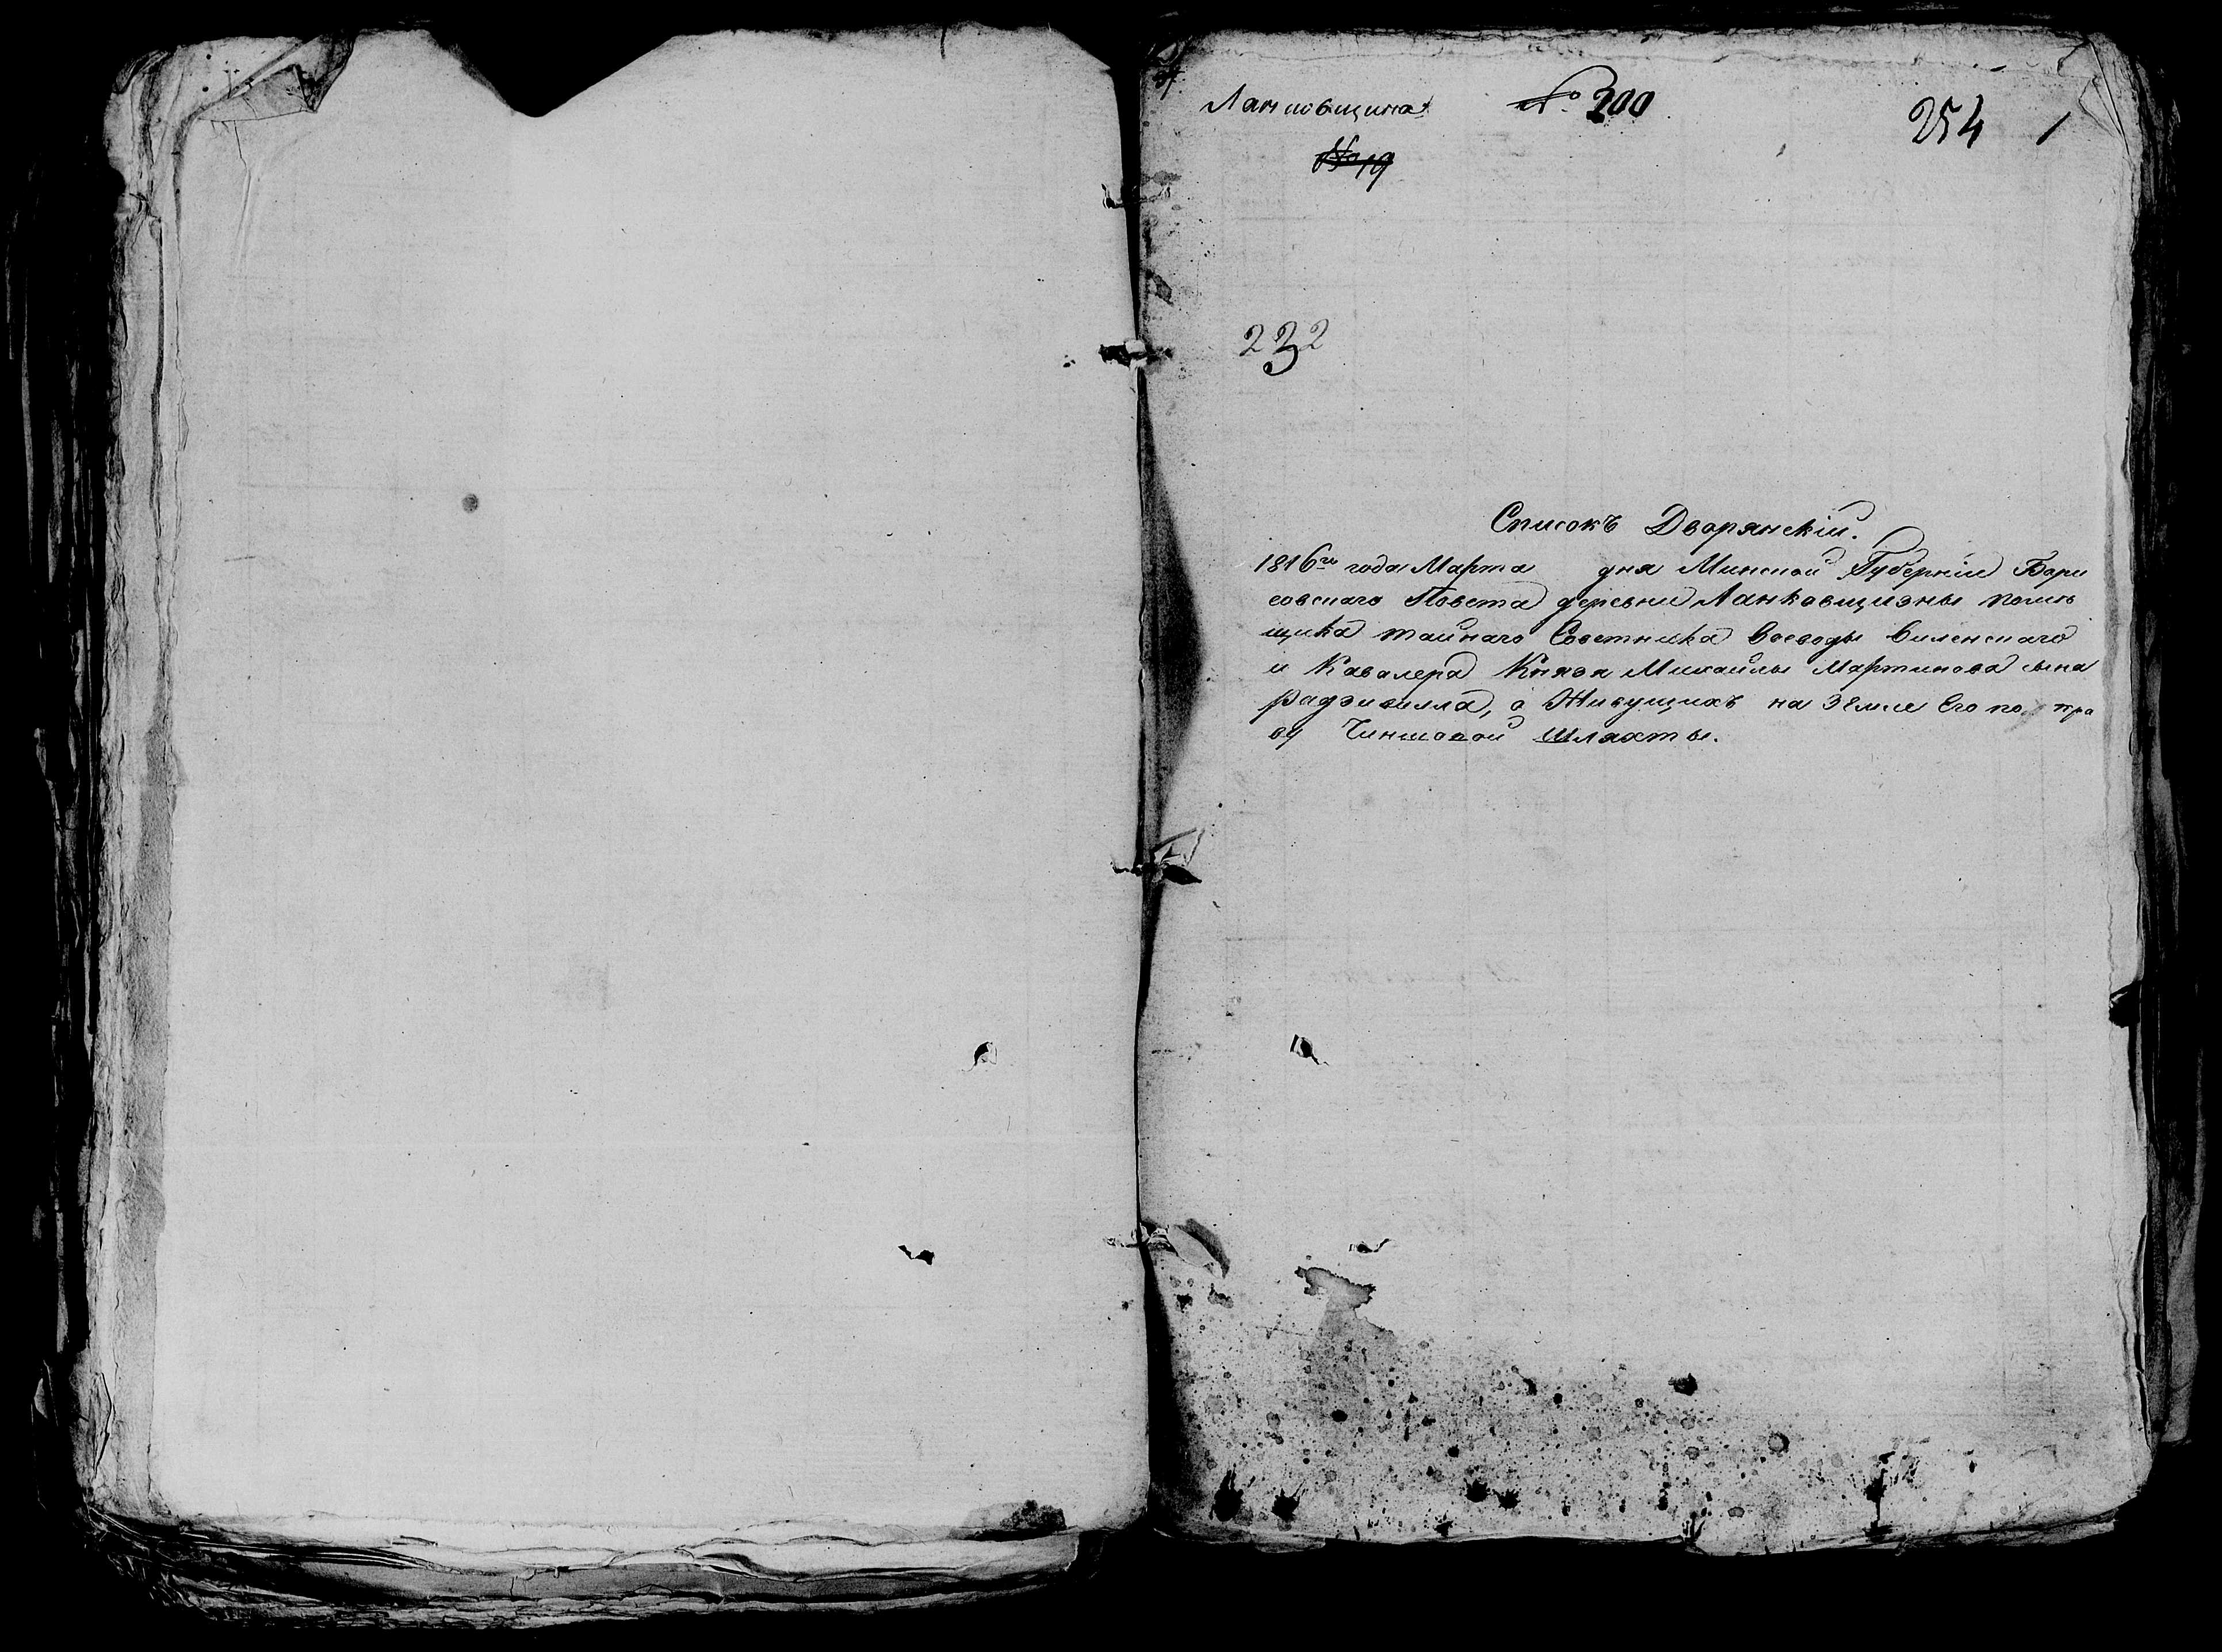 Ланковщина № 200 254 1
№ 19
232
Списокъ Дворянскій.
1816го года Марта дня Минской Губерніи Бори
совскаго Повета деревни Ланковщизны помѣ
щика тайнаго Советника Воеводы Виленскаго
и Кавалера Князя Михайлы Мартинова сына
Радзивилла, о Живущихъ на Земле Его по пра
ву Чиншовой Шляхты.